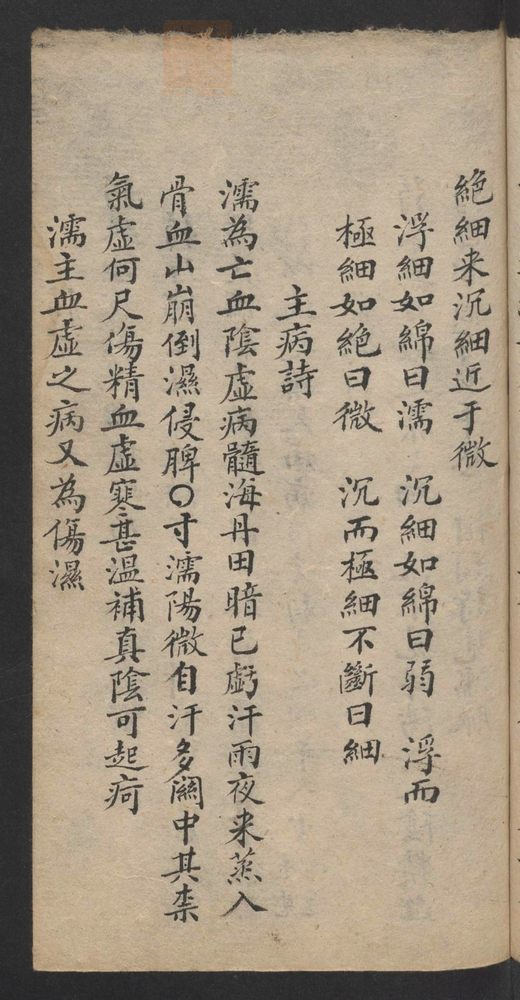 絶細来沉細近于微
浮細如綿曰濡 沉細如綿曰弱 浮而
極細如絶曰微 沉而極細不斷曰細
主病詩
濡為亡血陰虛病髓海丹田暗已虧汗雨夜来蒸入
骨血山崩倒濕侵脾〇寸濡陽微自汗多關中其柰
氣虛何尺傷精血虛寒甚溫補真陰可起疴
濡主血虛之病又為傷濕